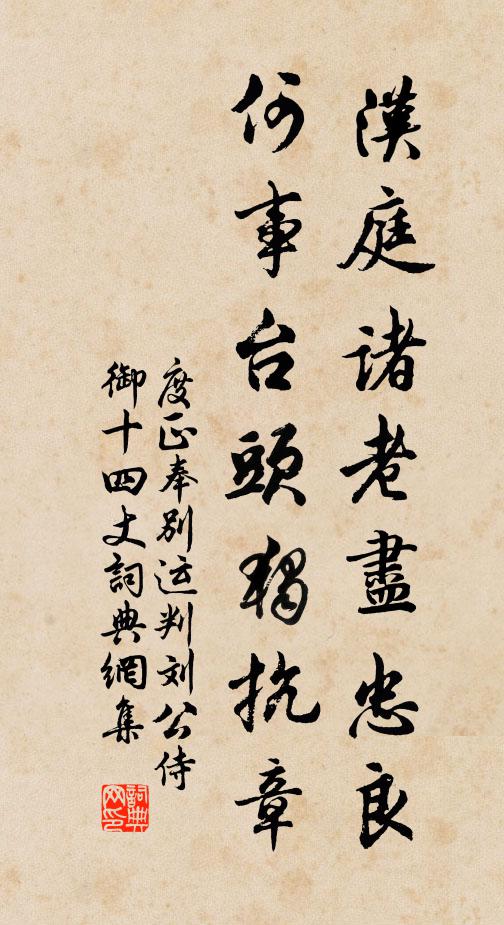 漢庭諸老盡忠良
何事台頭獨抗章
度正奉別运判刘公侍
御十四丈詞典網集
詞典网印